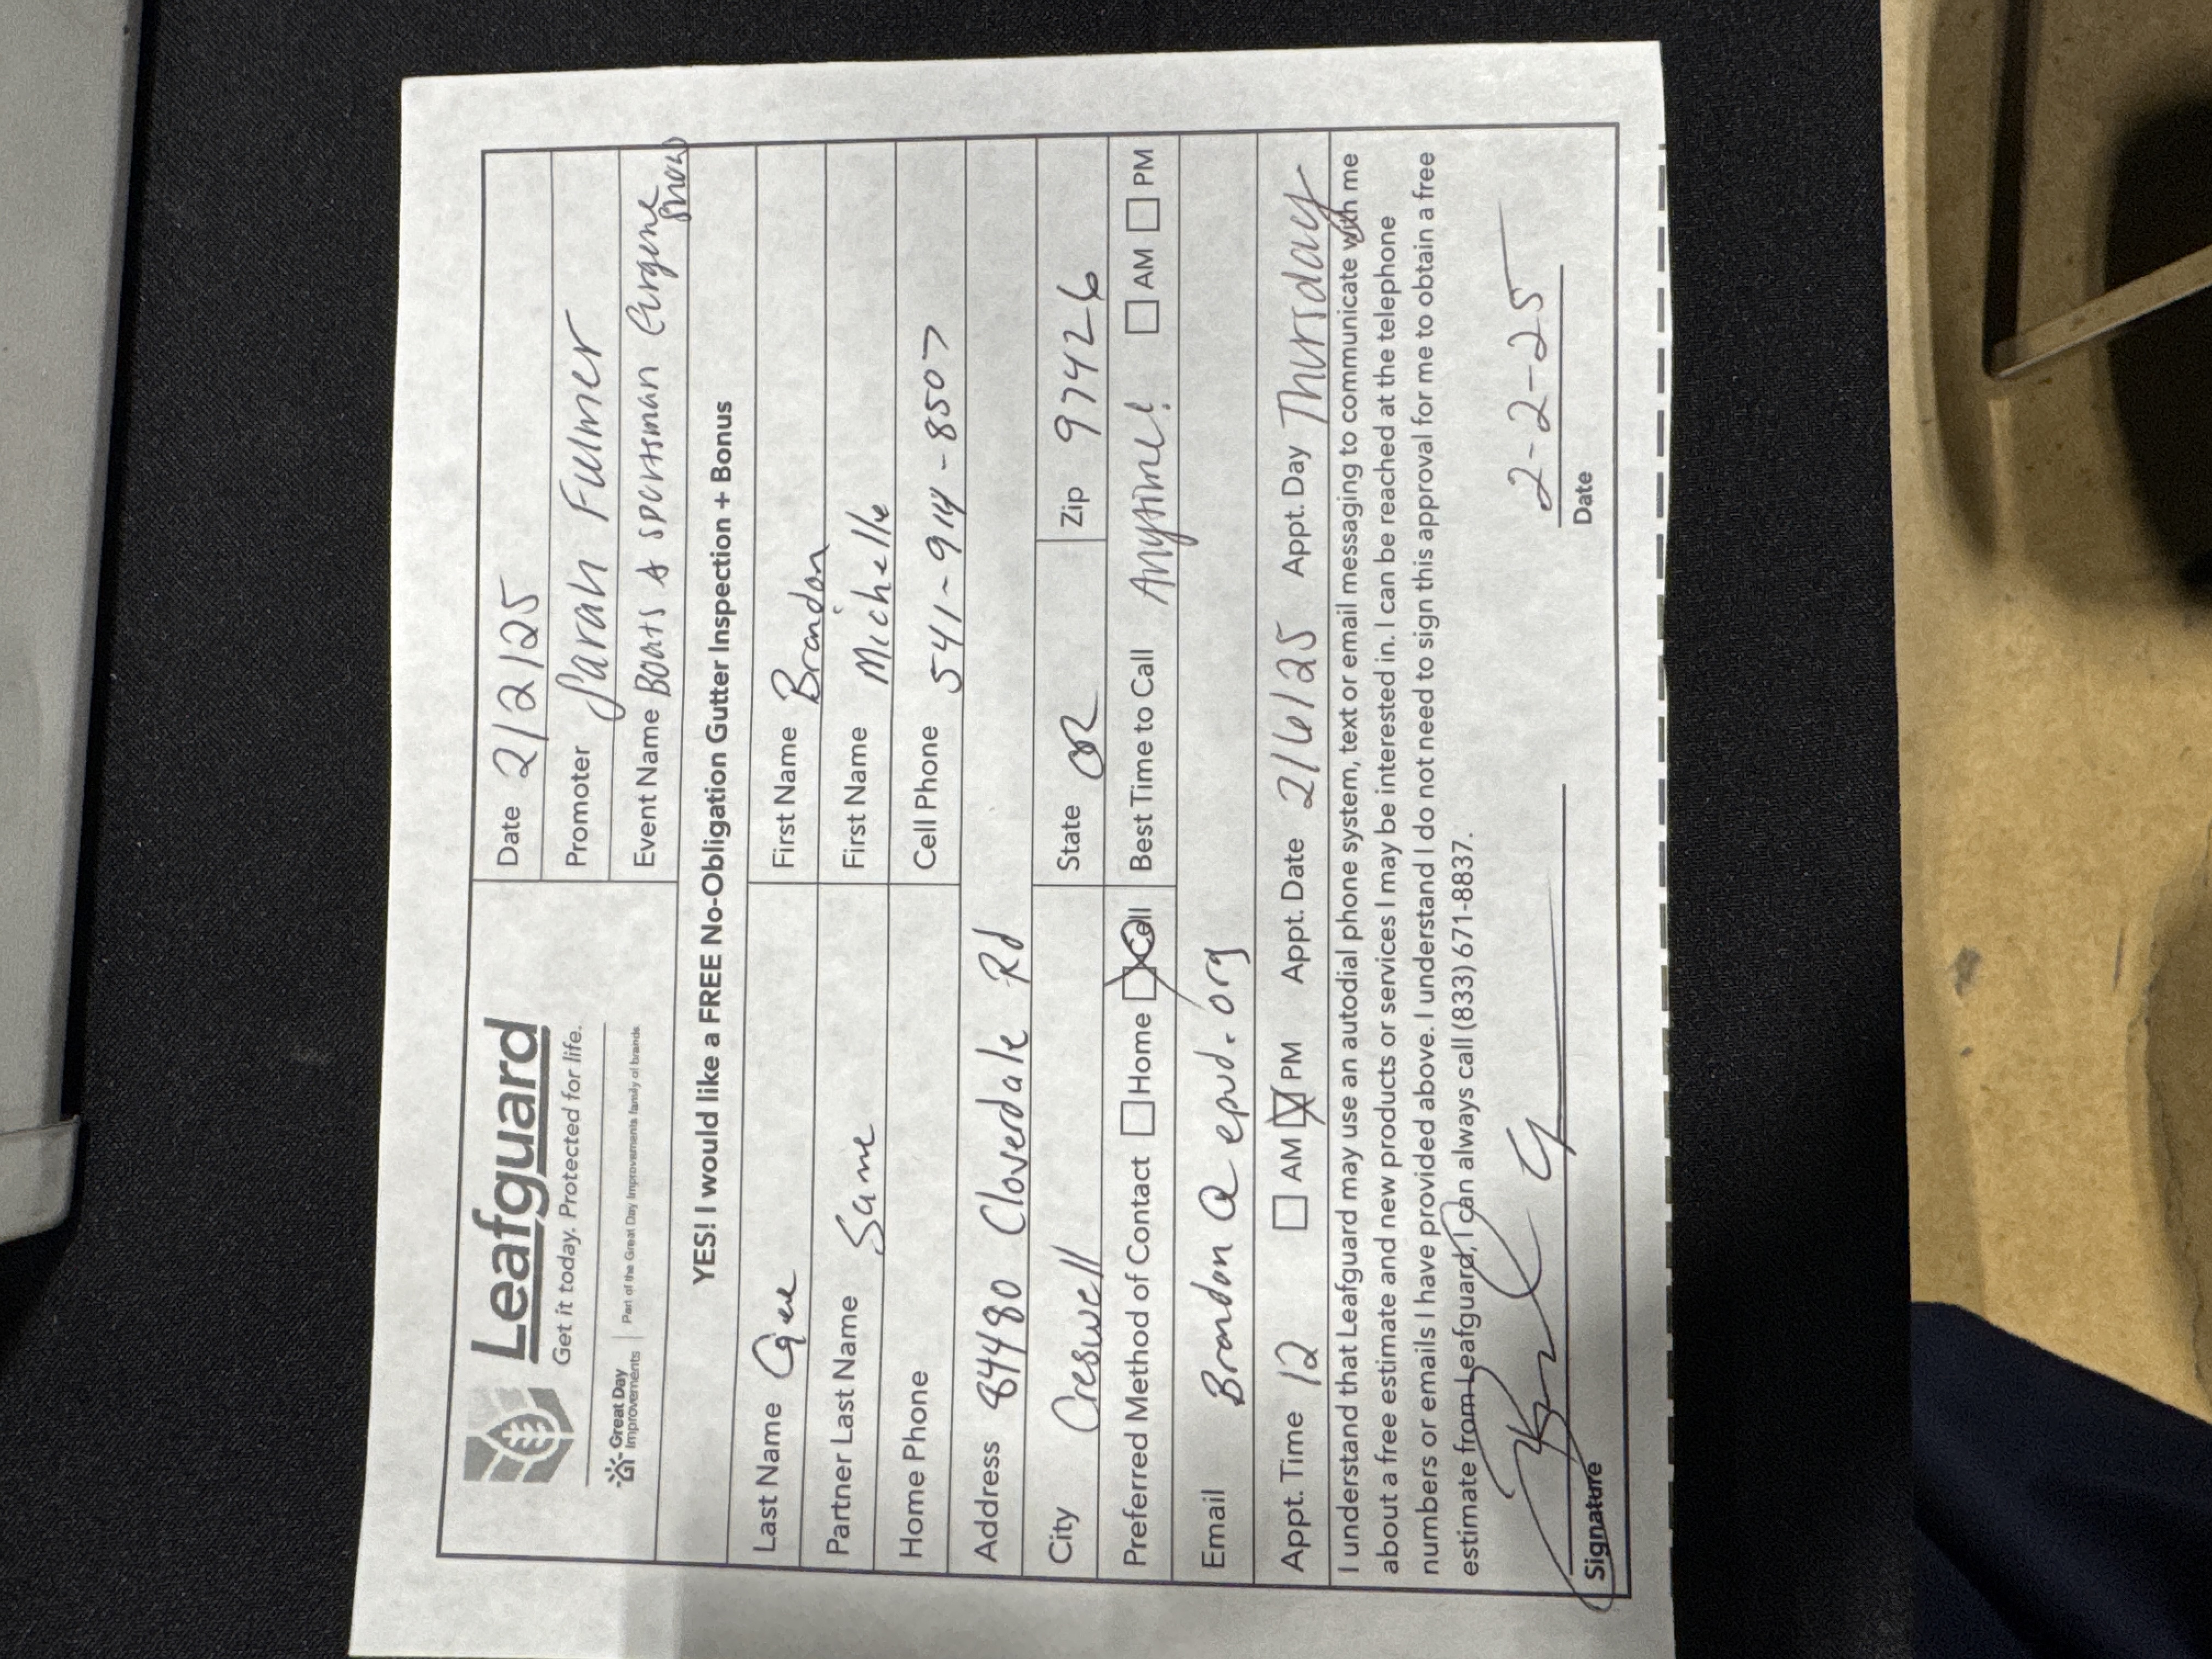 Leafguard
Get it today. Protected for life.
Great Day Improvements | Part of the Great Day Improvements family of brands
Date 2/2/25
Promoter Sarah Fulmer
Event Name Boats & sportsman Eurgene show
YES! I would like a FREE No-Obligation Gutter Inspection + Bonus
Last Name Gee First Name Brandon
Partner Last Name Same First Name Michelle
Home Phone Cell Phone 541-914-8507
Address 84480 Cloverdale Rd
City Creswell State OR Zip 97426
Preferred Method of Contact Home Cell Best Time to Call Anytime! AM PM
Email Brandon @ epud.org
Appt. Time 12 AM PM Appt. Date 2/6/25 Appt. Day Thursday
I understand that Leafguard may use an autodial phone system, text or email messaging to communicate with me
about a free estimate and new products or services I may be interested in. I can be reached at the telephone
numbers or emails I have provided above. I understand I do not need to sign this approval for me to obtain a free
estimate from Leafguard, I can always call (833) 671-8837.
2-2-25
Signature Date